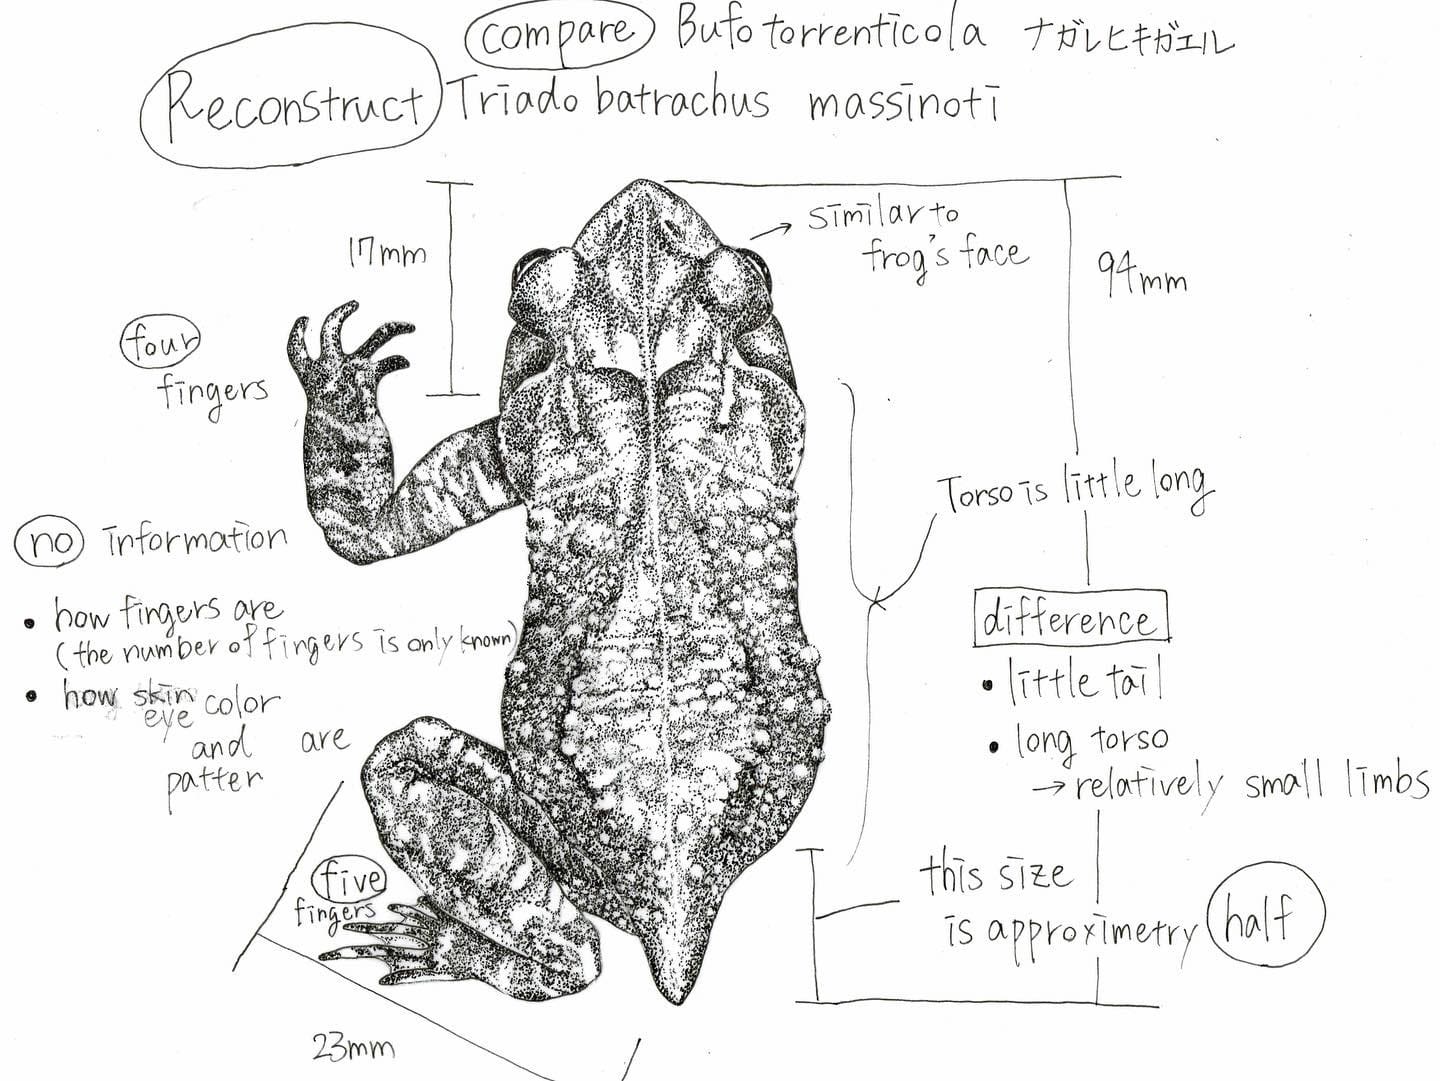 compare Bufo torrenticola ナガレヒキガエル
Reconstruct Triado batrachus massinoti
17mm
similar to
frog's face
94mm
four
fingers
Torso is little long
no information
• how fingers are
(the number of fingers is only known)
• how skin
eye color
and are
patter
difference
• little tail
• long torso
→ relatively small limbs
five
fingers
this size
is approximetry half
23mm